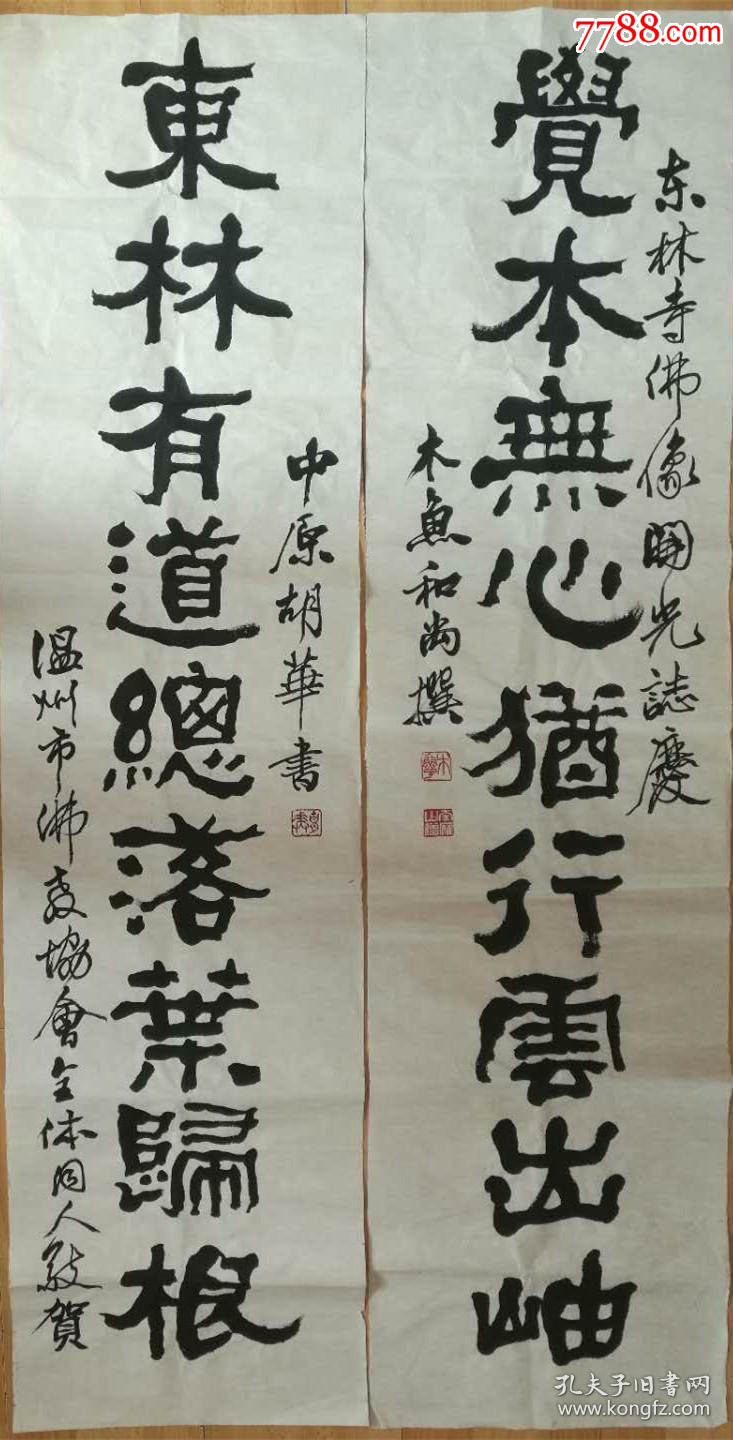 7788.com
东林寺佛像開光誌慶
覺本無心猶行雲出岫
木魚和尚撰
中原胡華書
東林有道總落葉歸根
温州市佛教協會全体同人敬賀
孔夫子旧书网
www.kongfz.com